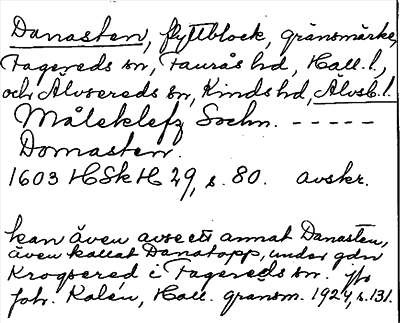 Danasten, flyttblock, gränsmärke,
Fagereds sn, Faurås hd, Hall. l,
och Älvsereds sn, Kinds hd, Älvsb. l.
Måleklefz Sochn. - - - - -
Domasten.
1603 HSkH 29, s. 80. avskr.
kan även avse ett annat Danasten,
även kallat Danatopp, under gdn
Krogsered i Fagereds sn. jfr
Joh. Kalén, Hall. gränsm. 1924, s. 131.